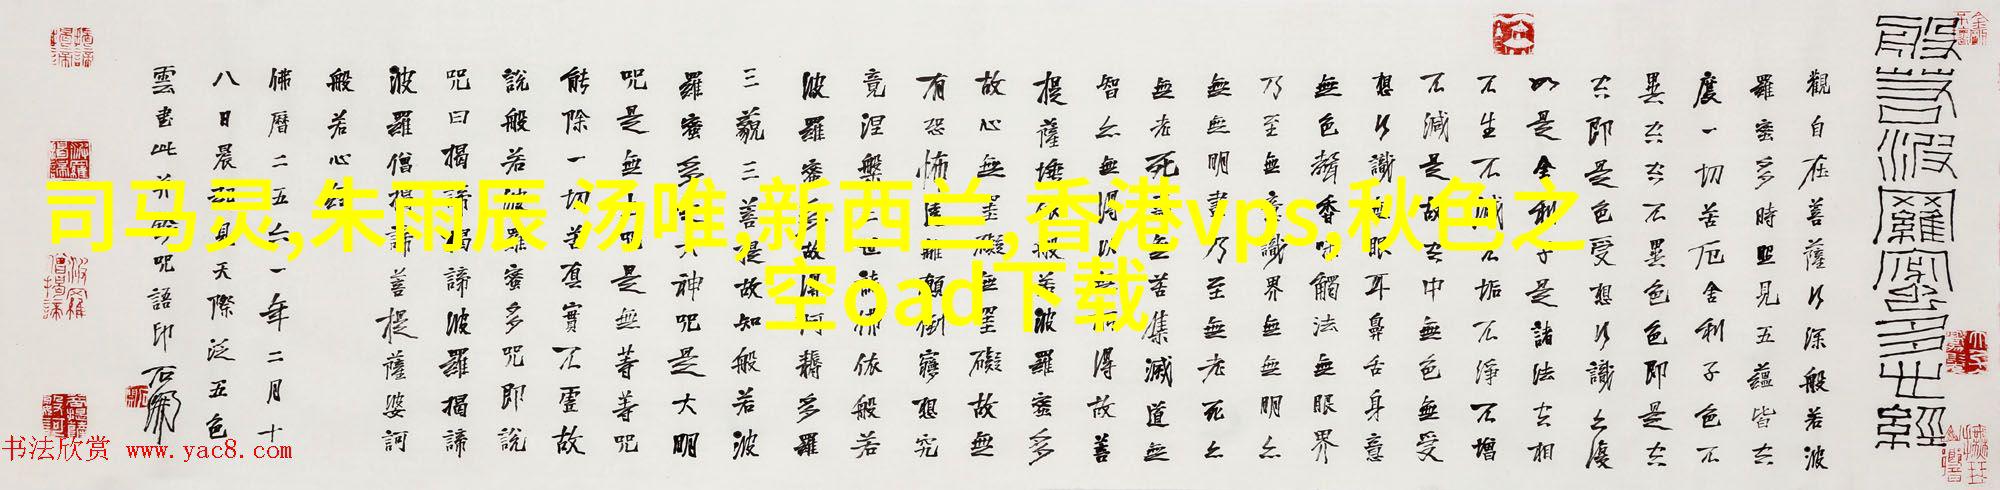 般若波羅蜜多心經
觀自在菩薩行深般若波
羅蜜多時照見五蘊皆空
度一切苦厄舍利子色不
異空空不異色色即是空
空即是色受想行識亦復
如是舍利子是諸法空相
不生不滅不垢不淨不增
不減是故空中無色無受
想行識無眼耳鼻舌身意
無色聲香味觸法無眼界
乃至無意識界無無明亦
無無明盡乃至無老死亦
無老死盡無苦集滅道無
智亦無得以無所得故菩
提薩埵依般若波羅蜜多
故心無罣礙無罣礙故無
有恐怖遠離顛倒夢想究
竟涅槃三世諸佛依般若
波羅蜜多故得阿耨多羅
三藐三菩提故知般若波
羅蜜多是大神咒是大明
咒是無上咒是無等等咒
能除一切苦真實不虛故
說般若波羅蜜多咒即說
咒曰揭諦揭諦波羅揭諦
波羅僧揭諦菩提薩婆訶
般若心經
佛曆二五六一年二月十
八日晨起見天際泛五色
雲書此并吟咒語印
司马灵,朱雨辰 汤唯,新西兰,香港vps,秋色之
空oad下载
书法欣赏 www.yac8.com